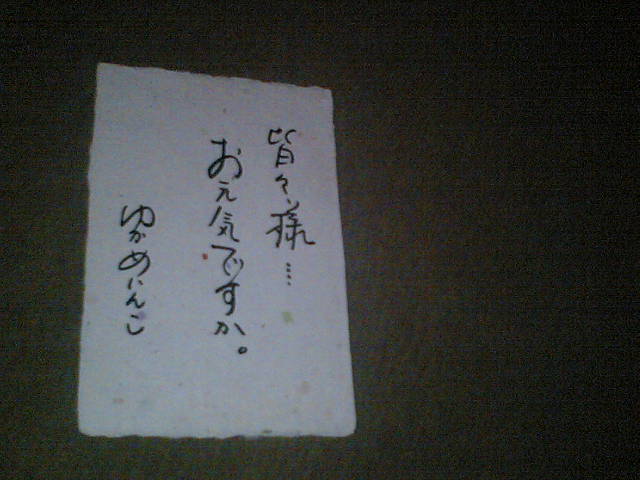 皆々様……
お元気ですか。
ゆかめいんこ